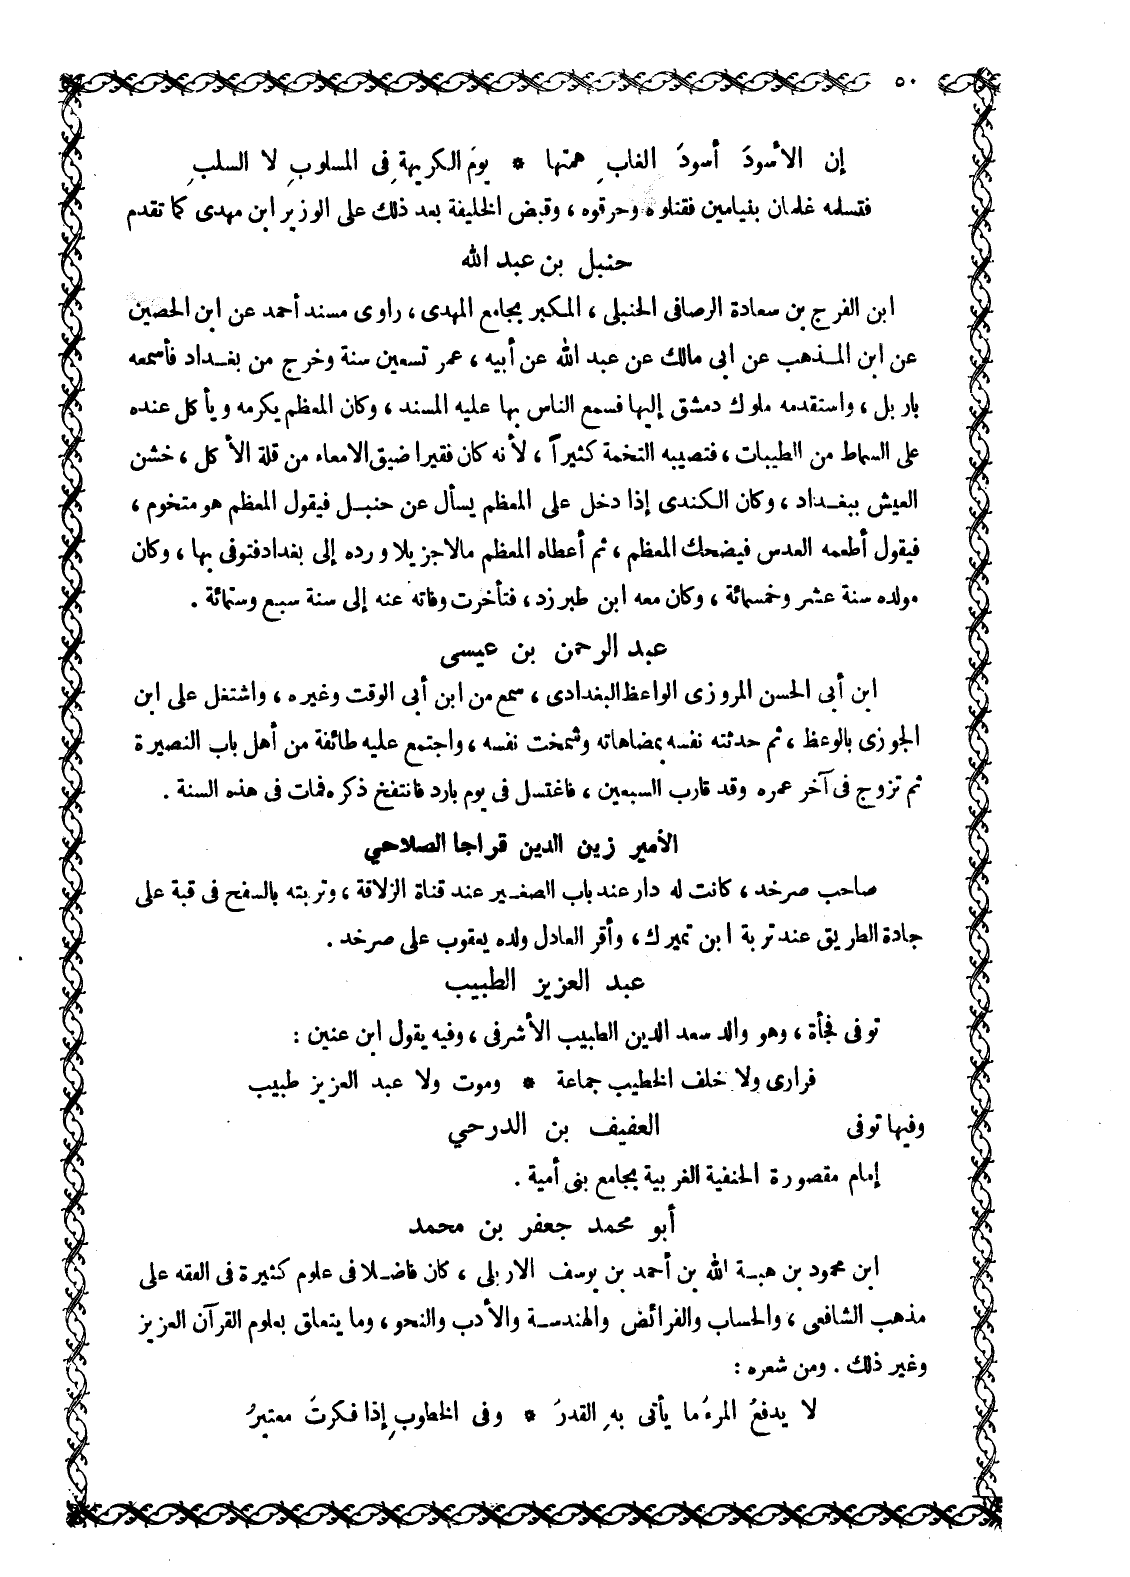 ٥٠
إن الأسودَ أسودَ الغاب ِ همتها * يومَ الكريهةِ فى المسلوب ِ لا السلبِ
فتسلمه غلمان بنيامين فقتلوه وحرقوه ، وقبض الخليفة بعد ذلك على الوزير ابن مهدى كما تقدم
حنبل بن عبد الله
ابن الفرج بن سعادة الرصافى الحنبلى ، المكبر بجامع المهدى ، راوى مسند أحمد عن ابن الحصين
عن ابن المذهب عن ابى مالك عن عبد الله عن أبيه ، عمر تسعين سنة وخرج من بغداد فأسمعه
باربل ، واستقدمه ملوك دمشق إليها فسمع الناس بها عليه المسند ، وكان المعظم يكرمه ويأكل عنده
على السماط من الطيبات ، فتصيبه التخمة كثيراً ، لأنه كان فقيرا ضيق الامعاء من قلة الأكل ، خشن
العيش ببغداد ، وكان الكندى إذا دخل على المعظم يسأل عن حنبل فيقول المعظم هو متخوم ،
فيقول أطعمه العدس فيضحك المعظم ، ثم أعطاه المعظم مالا جزيلا ورده إلى بغداد فتوفى بها ، وكان
مولده سنة عشر وخمسمائة ، وكان معه ابن طبرزد ، فتأخرت وفاته عنه إلى سنة سبع وستمائة .
عبد الرحمن بن عيسى
ابن أبى الحسن المروزى الواعظ البغدادى ، سمع من ابن أبى الوقت وغيره ، واشتغل على ابن
الجوزى بالوعظ ، ثم حدثته نفسه بمضاهاته وشمخت نفسه ، واجتمع عليه طائفة من أهل باب النصيرة
ثم تزوج فى آخر عمره وقد قارب السبعين ، فاغتسل فى يوم بارد فانتفخ ذكره فمات فى هذه السنة .
الأمير زين الدين قراجا الصلاحي
صاحب صرخد ، كانت له دار عند باب الصغير عند قناة الزلاقة ، وتربته بالسفح فى قبة على
جادة الطريق عند تربة ابن تميرك ، وأقر العادل ولده يعقوب على صرخد .
عبد العزيز الطبيب
توفى فجأة ، وهو والد سعد الدين الطبيب الأشرفى ، وفيه يقول ابن عنين :
فرارى ولا خلف الخطيب جماعة * وموت ولا عبد العزيز طبيب
وفيها توفى العفيف بن الدرحي
إمام مقصورة الحنفية الغربية بجامع بنى أمية .
أبو محمد جعفر بن محمد
ابن محمود بن هبة الله بن أحمد بن يوسف الاربلى ، كان فاضلا فى علوم كثيرة فى الفقه على
مذهب الشافعى ، والحساب والفرائض والهندسة والأدب والنحو ، وما يتعلق بعلوم القرآن العزيز
وغير ذلك . ومن شعره :
لا يدفعُ المرءُ ما يأتى بهِ القدرُ * وفى الخطوبِ إذا فكرتَ معتبرُ